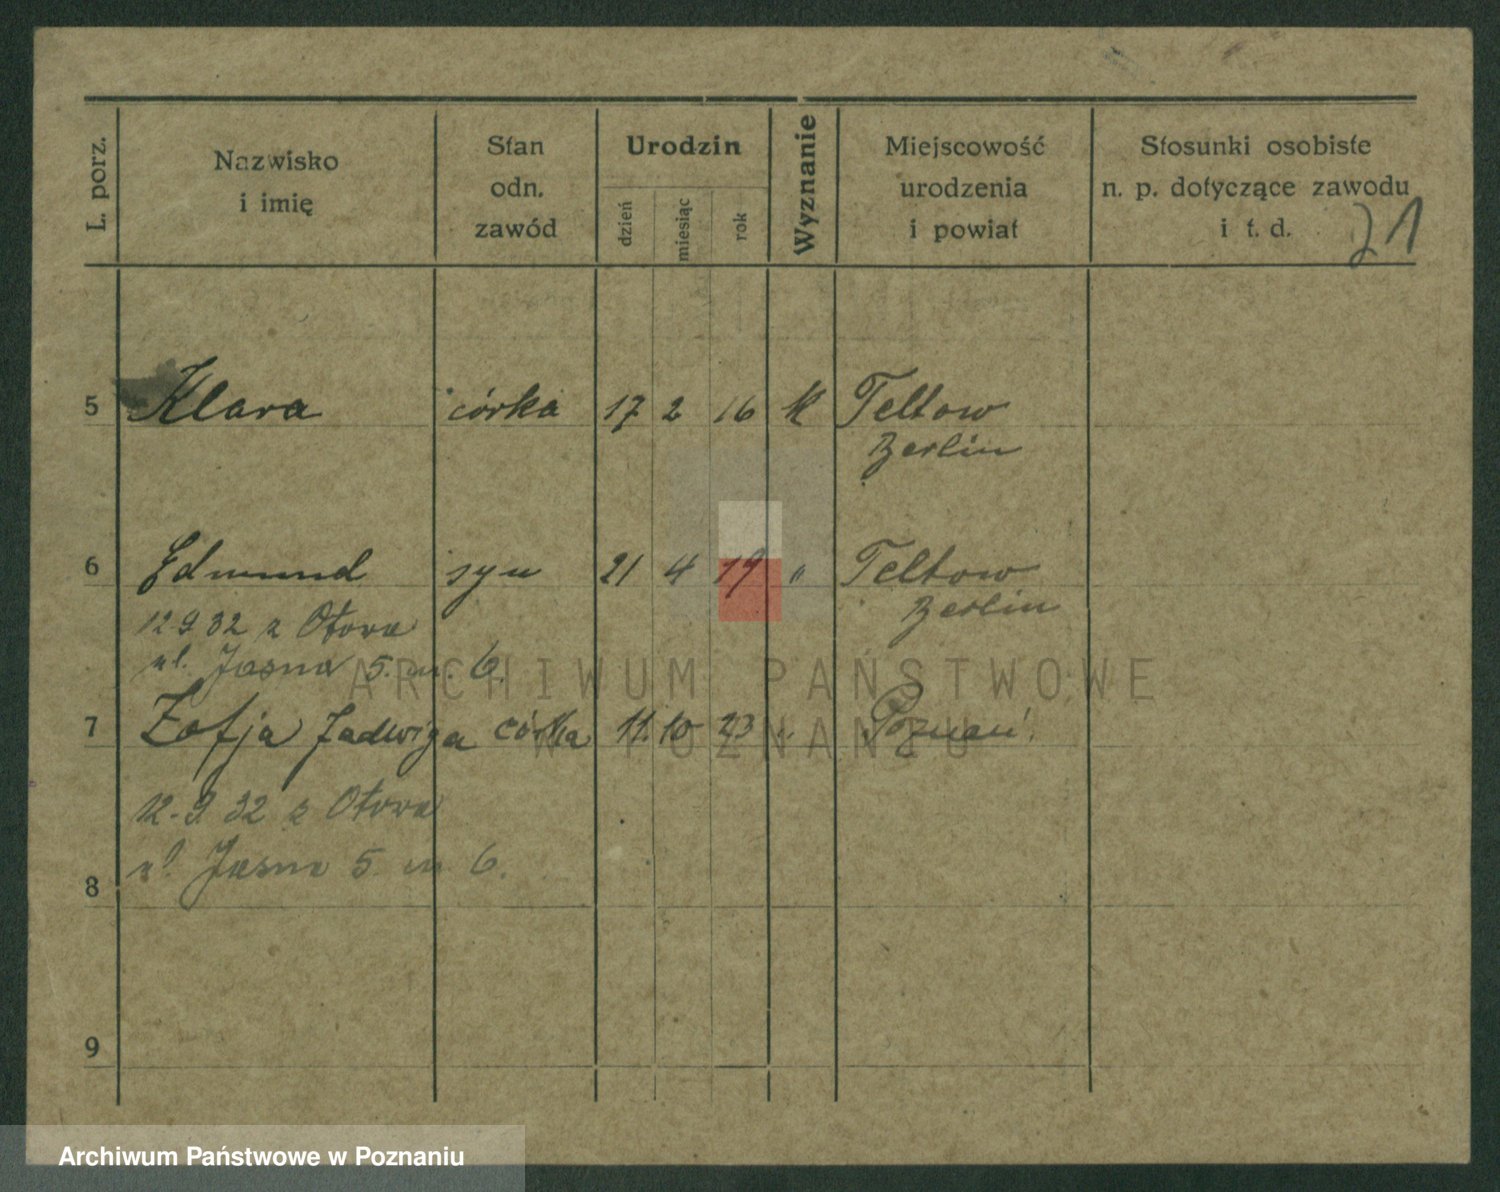 L. porz.
Nazwisko
i imię
Stan
odn.
zawód
Urodzin
dzień
miesiąc
rok
Wyznanie
Miejscowość
urodzenia
i powiat
Stosunki osobiste
n. p. dotyczące zawodu
i t. d.
21
5 Klara córka 17 2 16 K Teltow
Berlin
6 Edmund syn 21 4 19 " Teltow
Berlin
12.9.32 z Otorowa
ul. Jasna 5. m. 6.
7 Zofja Jadwiga córka 11 10 23 " Poznań
12.9.32 z
ul. Jasna 5 m 6.
8
9
ARCHIWUM PAŃSTWOWE
W POZNANIU
Archiwum Państwowe w Poznaniu